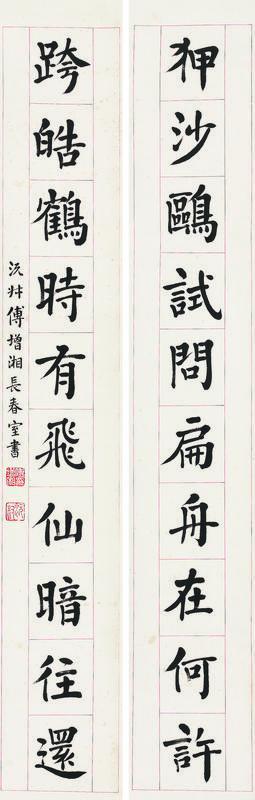 狎沙鷗試問扁舟在何許
跨皓鶴時有飛仙暗往還
沅叔傅增湘長春室書